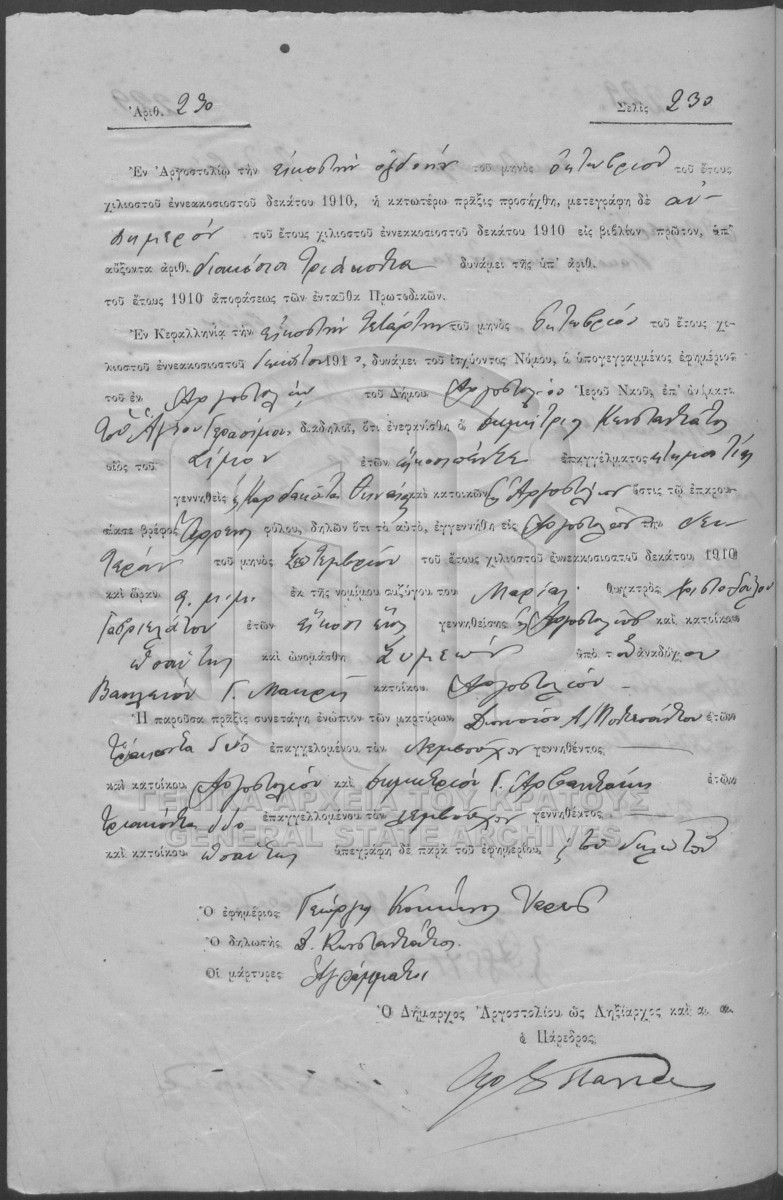 Ἀριθ. 230
Σελὶς 230
Ἐν Ἀργοστολίῳ τὴν εἰκοστὴν ὀγδόην τοῦ μηνὸς Ὀκτωβρίου τοῦ ἔτους
χιλιοστοῦ ἐννεακοσιοστοῦ δεκάτου 1910, ἡ κατωτέρω πρᾶξις προσήχθη, μετεγράφη δὲ αὐ-
θημερόν τοῦ ἔτους χιλιοστοῦ ἐννεακοσιοστοῦ δεκάτου 1910 εἰς βιβλίον πρῶτον, ὑπ'
αὔξοντα ἀριθ. διακόσια τριάκοντα δυνάμει τῆς ὑπ' ἀριθ.
τοῦ ἔτους 1910 ἀποφάσεως τῶν ἐνταῦθα Πρωτοδικῶν.
Ἐν Κεφαλληνίᾳ τὴν εἰκοστὴν τετάρτην τοῦ μηνὸς Ὀκτωβρίου τοῦ ἔτους χι-
λιοστοῦ ἐννεακοσιοστοῦ δεκάτου 1910, δυνάμει τοῦ ἰσχύοντος Νόμου, ὁ ὑπογεγραμμένος ἐφημέριος
τοῦ ἐν Ἀργοστολίῳ τοῦ Δήμου Ἀργοστολίου Ἱεροῦ Ναοῦ, ἐπ' ὀνόματι
τοῦ Ἁγίου Γερασίμου διαδηλοῖ, ὅτι ἐνεφανίσθη ὁ Δημήτριος Κωνσταντάτος
υἱὸς τοῦ Σίμου ἐτῶν εἰκοσιπέντε ἐπαγγέλματος κτηματίας
γεννηθεὶς καὶ κατοικῶν ἐν Ἀργοστολίῳ ὅστις τῷ ἐπαρου-
σίασε βρέφος ἄρρενος φύλου, δηλῶν ὅτι τὸ αὐτὸ, ἐγεννήθη εἰς Ἀργοστόλιον τὴν δευ-
τέραν τοῦ μηνὸς Σεπτεμβρίου τοῦ ἔτους χιλιοστοῦ ἐννεακοσιοστοῦ δεκάτου, 1910
καὶ ὥραν μ.μ. ἐκ τῆς νομίμου συζύγου του Μαρίας θυγατρὸς Χριστοδούλου
Γαβριελάτου ἐτῶν εἴκοσι γεννηθείσης ἐν Ἀργοστολίῳ καὶ κατοίκου
ὡσαύτως καὶ ὠνομάσθη Συμεών ὑπὸ τοῦ ἀναδόχου
Βασιλείου Γ. Μακρῆ κατοίκου Ἀργοστολίου
Ἡ παροῦσα πρᾶξις συνετάγη ἐνώπιον τῶν μαρτύρων Διονυσίου Α. ἐτῶν
τριάκοντα δύο ἐπαγγελομένου τὸν λεμβοῦχον γεννηθέντος
καὶ κατοίκου Ἀργοστολίου καὶ Δημητρίου Γ. Ἀρβανιτάκη ἐτῶν
τριάκοντα δύο ἐπαγγελλομένου τὸν λεμβοῦχον γεννηθέντος
καὶ κατοίκου ὡσαύτως ὑπεγράφη δὲ παρὰ τοῦ ἐφημερίου, τοῦ δηλωτοῦ
ΓΕΝΙΚΑ ΑΡΧΕΙΑ ΤΟΥ ΚΡΑΤΟΥΣ
GENERAL STATE ARCHIVES
Ὁ ἐφημέριος Γεώργιος Ἱερεὺς
Ὁ δηλωτὴς Δ. Κωνσταντάτος
Οἱ μάρτυρες Ἀγράμματοι
Ὁ Δήμαρχος Ἀργοστολίου ὡς Ληξίαρχος καὶ α. α.
ὁ Πάρεδρος